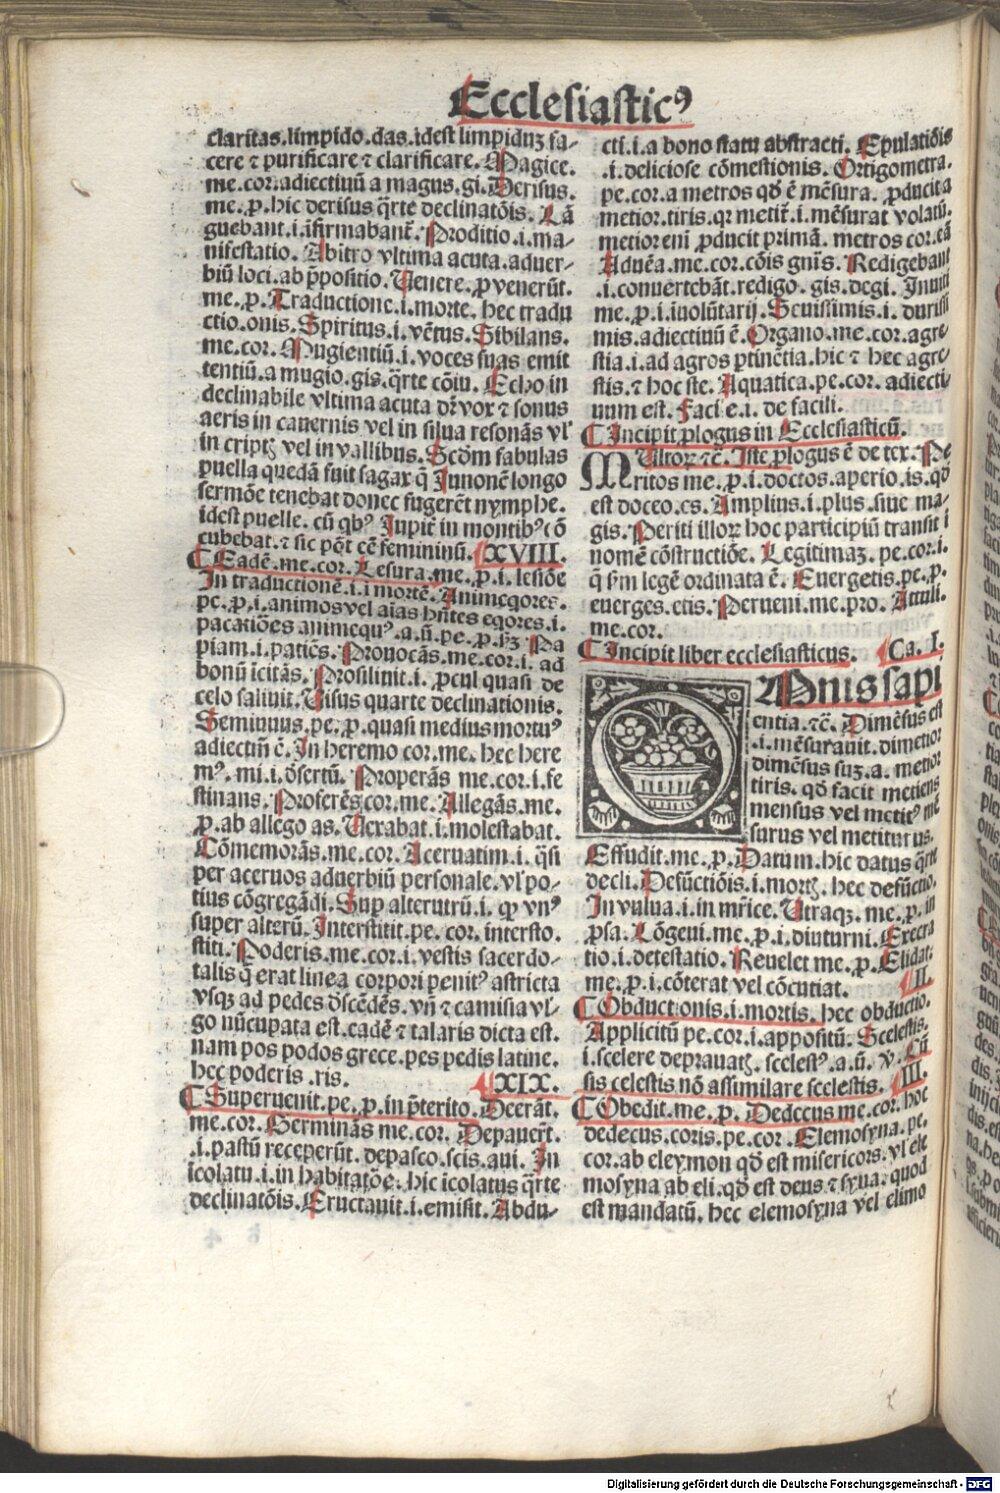 Ecclesiasticꝰ
claritas.limpido.das.idest limpiduꝫ fa-
cere ⁊ purificare ⁊ clarificare. Magice.
me.cor.adiectiuū a magus.gi. Derisus.
me.p̱.hic derisus q̄rte declinatōis. Lā
guebant.i.īfirmabant᷑. Proditio.i.ma-
nifestatio. Abīt̄ro vltima acuta.aduer-
biū loci.ab p̄positio. Uenere.p̱ venerūt.
me.p̱. Traductione.i.morte. hec tradu
ctio.onis. Spiritus.i.vētus. Sibilans.
me.cor. Mugientiū.i.voces suas emit
tentiū.a mugio.gis.q̄rte cōiu. Echo in
declinabile vltima acuta dr̄ vox ⁊ sonus
aeris in cauernis vel in silua resonās vl'
in criptꝭ vel in vallibus. Scdm̄ fabulas
puella quedā fuit sagax q̄ Junonē longo
sermōe tenebat donec fugerēt nymphe.
idest puelle. cū qbꝰ Jupit᷑ in montibꝰ cō
cubebat.⁊ sic pōt eē femininū. XVIII.
Eadē.me.cor. Lesura.me.p̱.i.lesiōe
In traductionē.i.i mortē. Animeqores.
pe.p̱.i.animos vel aīas hn̄tes eqores.i.
pacatiōes animequꝰ.a.ū.pe.p̱.sꝫ Pa
piam.i.patiēs. Prouocās.me.cor.i. ad
bonū īcitās. Prosiliuit.i. p̱cul quasi de
celo saliuit. Uisus quarte declinationis.
Semiuuus.pe.p̱.quasi medius mortuꝰ
adiectiū ē. In heremo cor.me. hec here
mꝰ.mi.i d̄sertū. Properās me.cor.i.fe
stinans. Proferēs cor.me. Allegās.me.
p̱.ab allego as. Uexabat.i.molestabat.
Cōmemorās.me.cor. Aceruatim.i.q̄si
per aceruos aduerbiū personale.vl' po-
tius cōgregādi. Sup̱ alterutrū.i. qp̱ vnꝰ
super alterū. Interstitit.pe.cor.intersto.
stiti. Poderis.me.cor.i.vestis sacerdo-
talis q̄ erat linea corpori penitꝰ astricta
vsqꝫ ad pedes d̄scēdēs.vn̄ ⁊ camisia vl'-
go nūcupata est.eadē ⁊ talaris dicta est.
nam pos podos grece.pes pedis latine.
hec poderis.ris. XIX.
Superuenit.pe.p̱.in p̄terito. Deerāt.
me.cor. Germinās me.cor. Depauerūt.
.i.pastū receperūt.depasco.scis.aui. In
īcolatu.i.in habitatōe.hic īcolatus q̄rte
declinatōis. Eructauit.i.emisit. Abdu-
cti.i.a bono statu abstracti. Epulatiōis
.i.deliciose cōmestionis. Ortigometra.
pe.cor.a metros qd̄ ē mēsura. p̱ducit a
metior.tiris.qr metit᷑.i.mēsurat volatū.
metior eni p̱ducit primā. metros cor.eā
Aduēa.me.cor.cōis gn̄is. Redigebant
.i.conuertebāt.redigo.gis.degi. Inuiti
me.p̱.i.iuolūtarij. Seuissimis.i.durissi
mis adiectiuū ē. Organo.me.cor.agre
stia.i.ad agros p̱tinētia.hic ⁊ hec agre
stis.⁊ hoc ste. Aquatica.pe.cor. adiecti-
uum est. Faci e.i. de facili.
Incipit p̱logus in Ecclesiasticū.
Multoꝝ ⁊c̄. Iste p̱logus ē de tex. Pe
ritos me.p̱.i.doctos.aperio.is.qd̄
est doceo.es. Amplius.i.plus.siue ma-
gis. Periti illoꝝ hoc participiū transit ī
nomē cōstructiōe. Legitimaꝫ. pe.cor.i.
q̄ sm̄ legē ordinata ē. Euergetis.pe.p̱.
euerges.etis. Perueni.me.pro. Attuli.
me.cor.
Incipit liber ecclesiasticus. Ca.I.
Omnis sapi
entia.⁊c̄. Dimēsus est
.i.mēsurauit.dimetior
dimēsus suꝫ.a. metior
tiris. qd̄ facit metiens
mensus vel metitꝰ me
surus vel metiturus.
Effudit.me.p̱. Datum.hic datus q̄rte
decli. Defūctiōis.i.mortꝭ. hec defūctio.
In vulua.i.in mr̄ice. Utraqꝫ. me.p̱.in
p̱sa. Lōgeui.me.p̱.i.diuturni. Execra
tio.i.detestatio. Reuelet me.p̱. Elidat
me.p̱.i.cōterat vel cōcutiat. II.
Obductionis.i.mortis. hec obductio.
Applicitū pe.cor.i.appositū. Scelestis.
i.scelere deprauatꝭ. scelestꝰ.a.ū. v̄. Cū
sis celestis nō assimilare scelestis. III.
Obedit.me.p̱. Dedecus me.cor.hoc
dedecus.coris.pe.cor. Elemosyna.pe.
cor.ab eleymon qd̄ est misericors.vl' ele
mosyna ab eli.qd̄ est deus ⁊ syna.quod
est mandatū. hec elemosyna vel elimo
Digitalisierung gefördert durch die Deutsche Forschungsgemeinschaft - DFG